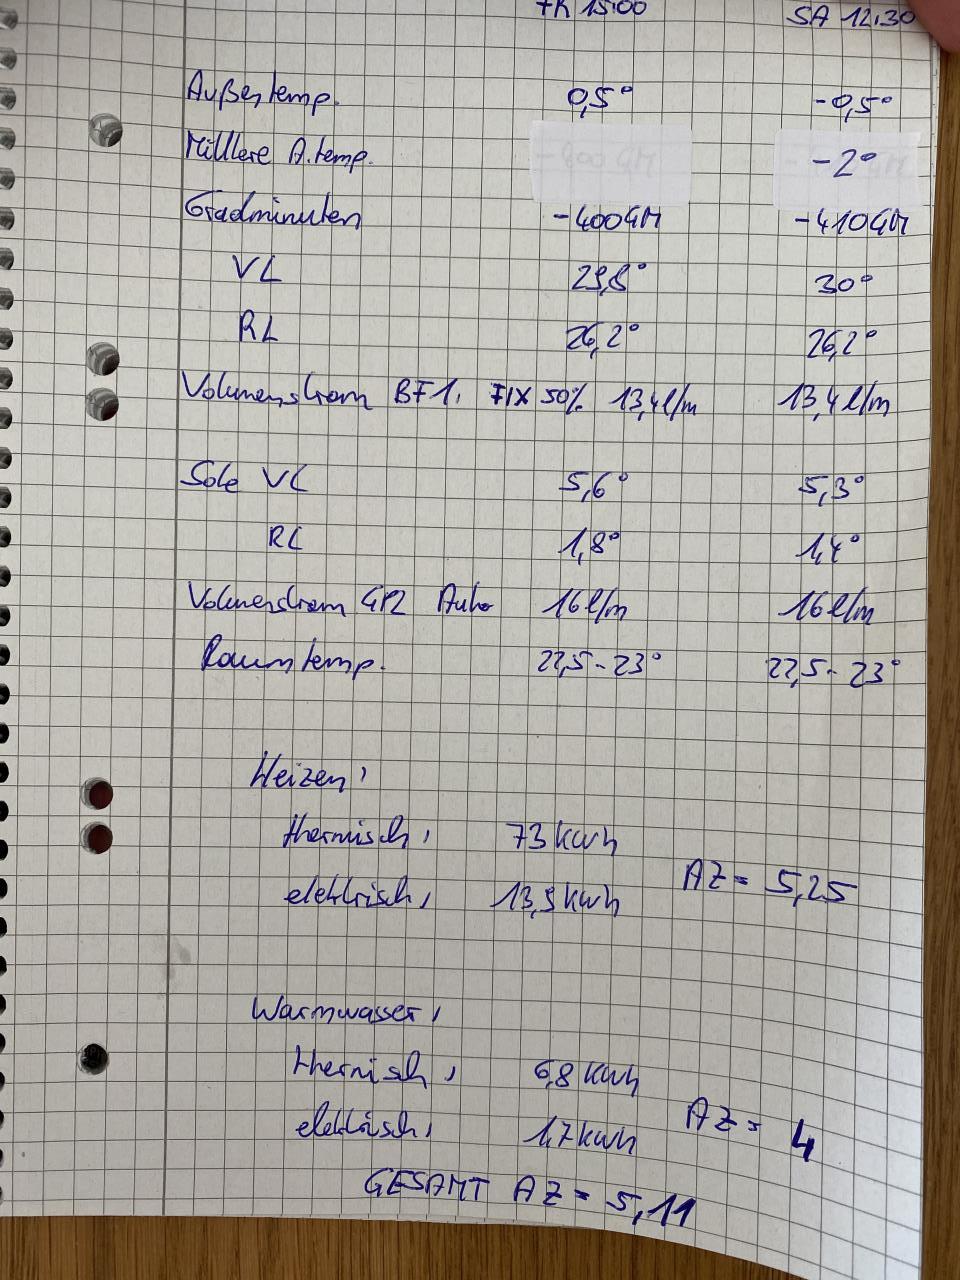 FR 15:00 SA 12:30
Außentemp. 0,5° -0,5°
Mittlere A.temp. -2°
Gradminuten -400GM -410GM
VL 29,8° 30°
RL 26,2° 26,2°
Volumenstrom BF1, FIX 50% 13,4l/m 13,4l/m
Sole VL 5,6° 5,3°
RL 1,8° 1,4°
Volumenstrom GP2 Auto 16l/m 16l/m
Raumtemp. 22,5-23° 22,5-23°
Heizen,
thermisch, 73kwh
elektrisch, 13,9kwh AZ= 5,25
Warmwasser,
thermisch, 6,8 kwh
elektrisch, 1,7kwh AZ= 4
GESAMT AZ= 5,11